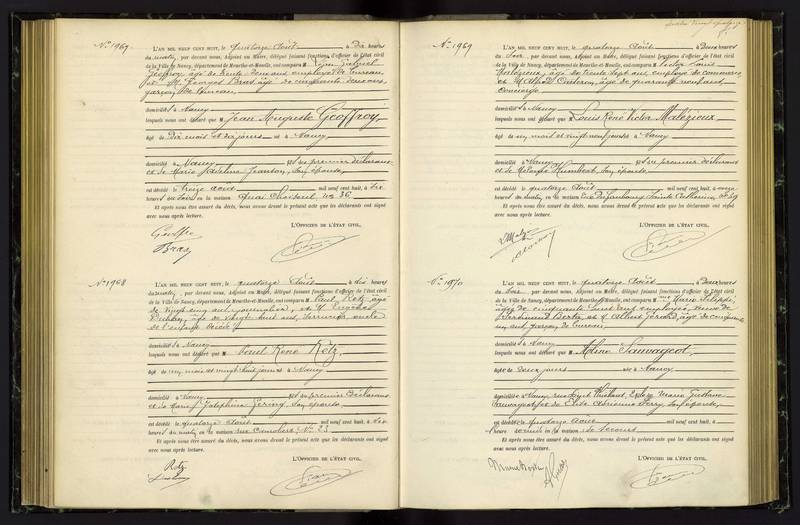 No 1967
L'AN MIL NEUF CENT HUIT, le quatorze Août à dix heures
du matin, par devant nous, Adjoint au Maire, délégué faisant fonctions d'officier de l'état civil
de la Ville de Nancy, département de Meurthe-et-Moselle, ont comparu M
Geoffroy, âgé de trente deux ans employé de bureau
et M Bras âgé de cinquante deux ans
garçon de bureau
domicilié à Nancy
lesquels nous ont déclaré que M Jean Auguste Geoffroy
âgé de Dix mois et dix jours né à Nancy
domicilié à Nancy fils du premier déclarant
et de Marie son épouse
est décédé le treize août mil neuf cent huit, à dix
heures du soir en la maison Quai Choiseul, no 36.
Et après nous être assuré du décès, nous avons dressé le présent acte que les déclarants ont signé
avec nous après lecture.
L'OFFICIER DE L'ÉTAT CIVIL,
Geoffroy
Bras
No 1968
L'AN MIL NEUF CENT HUIT, le quatorze Août à dix heures
du matin, par devant nous, Adjoint au Maire, délégué faisant fonctions d'officier de l'état civil
de la Ville de Nancy, département de Meurthe-et-Moselle, ont comparu M Paul Retz âgé
de vingt cinq ans journalier, et M Eugène
âgé de vingt huit ans, serrurier, oncle
de l'enfant décédé
domicilié à Nancy
lesquels nous ont déclaré que M Paul René Retz,
âgé de un mois et vingt huit jours né à Nancy
domicilié à Nancy fils du premier déclarant
et de Marie Joséphine son épouse
est décédé le quatorze Août mil neuf cent huit, à six
heures du matin en la maison rue No 23
Et après nous être assuré du décès, nous avons dressé le présent acte que les déclarants ont signé
avec nous après lecture.
L'OFFICIER DE L'ÉTAT CIVIL,
Retz
No 1969
L'AN MIL NEUF CENT HUIT, le quatorze Août à Deux heures
du soir, par devant nous, Adjoint au Maire, délégué faisant fonctions d'officier de l'état civil
de la Ville de Nancy, département de Meurthe-et-Moselle, ont comparu M Victor Louis
Malézieux, âgé de trente sept ans employé de commerce
et M Alfred âgé de quarante neuf ans,
concierge
domicilié à Nancy
lesquels nous ont déclaré que M Louis René Victor Malézieux
âgé de un mois et vingt neuf jours né à Nancy
domicilié à Nancy fils du premier déclarant
et de Humbert, son épouse
est décédé le quatorze Août mil neuf cent huit, à onze
heures du matin, en la maison rue du Faubourg Sainte Catherine, no 59
Et après nous être assuré du décès, nous avons dressé le présent acte que les déclarants ont signé
avec nous après lecture.
L'OFFICIER DE L'ÉTAT CIVIL,
No 1970
L'AN MIL NEUF CENT HUIT, le quatorze Août à Deux heures
du soir, par devant nous, Adjoint au Maire, délégué faisant fonctions d'officier de l'état civil
de la Ville de Nancy, département de Meurthe-et-Moselle, ont comparu Mme Marie
âgée de cinquante ans employée, veuve de
et M Albert Gérard âgé de cinquante
un ans garçon de bureau
domicilié à Nancy
lesquels nous ont déclaré que M Sauvageot
âgé de deux jours né à Nancy
domicilié à Nancy, rue fils de Marie Gustave
Sauvageot et de son épouse
est décédé le quatorze Août mil neuf cent huit, à
heures du matin en la maison de Secours
Et après nous être assuré du décès, nous avons dressé le présent acte que les déclarants ont signé
avec nous après lecture.
L'OFFICIER DE L'ÉTAT CIVIL,